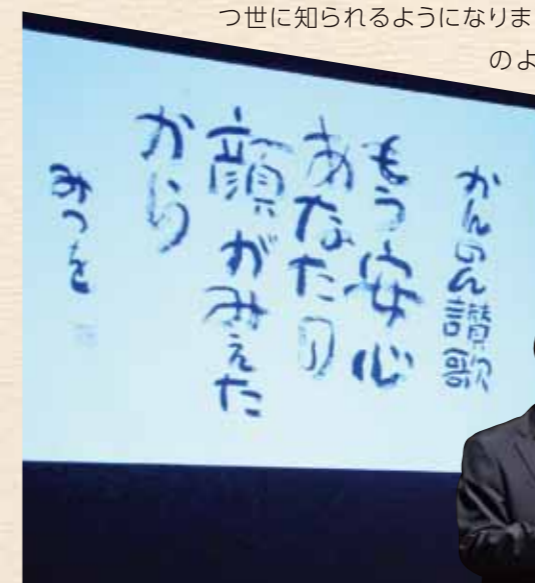 つ世に知られるようになりま
のよ
かんのん讃歌
もう安心
あなたの
顔がみえた
から
みつを